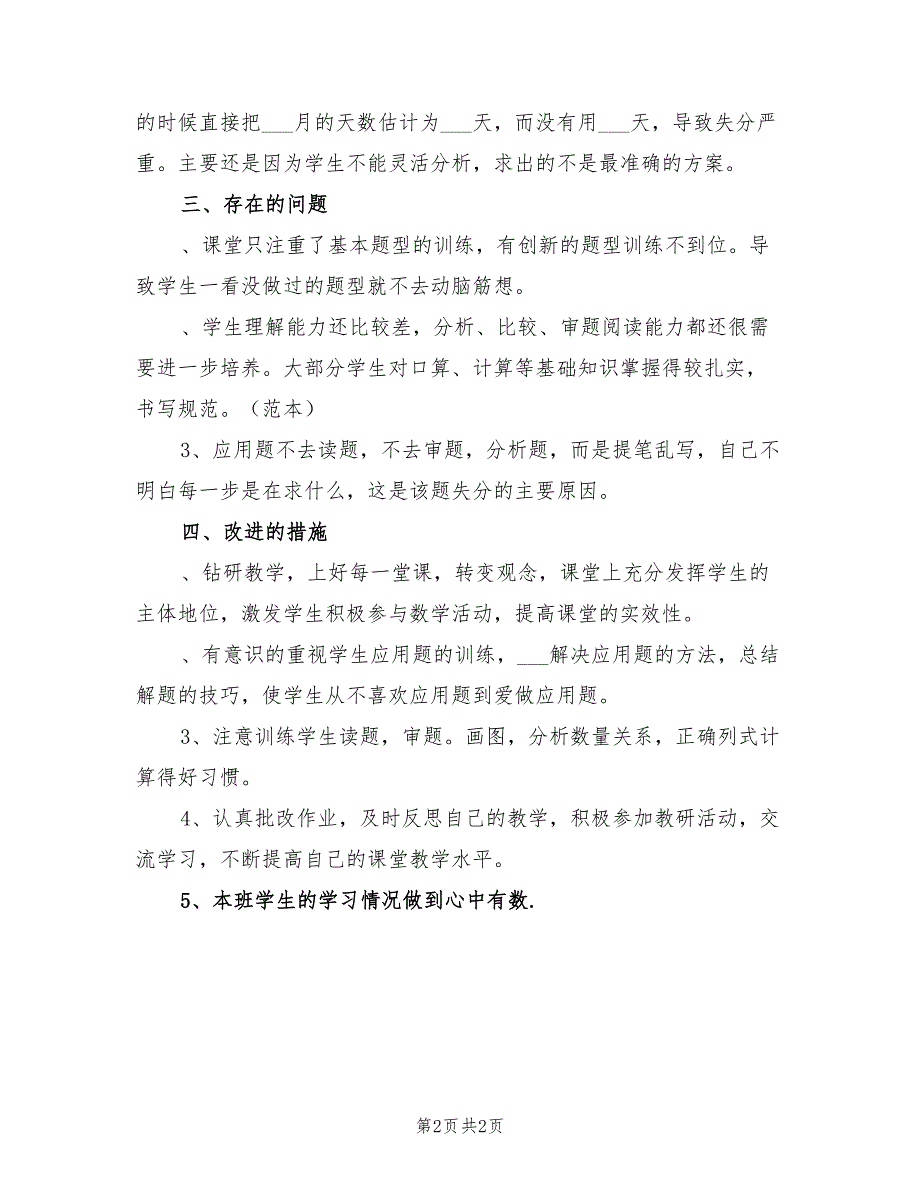 的时候直接把___月的天数估计为___天，而没有用___天，导致失分严
重。主要还是因为学生不能灵活分析，求出的不是最准确的方案。
三、存在的问题
、课堂只注重了基本题型的训练，有创新的题型训练不到位。导
致学生一看没做过的题型就不去动脑筋想。
、学生理解能力还比较差，分析、比较、审题阅读能力都还很需
要进一步培养。大部分学生对口算、计算等基础知识掌握得较扎实，
书写规范。（范本）
3、应用题不去读题，不去审题，分析题，而是提笔乱写，自己不
明白每一步是在求什么，这是该题失分的主要原因。
四、改进的措施
、钻研教学，上好每一堂课，转变观念，课堂上充分发挥学生的
主体地位，激发学生积极参与数学活动，提高课堂的实效性。
、有意识的重视学生应用题的训练，___解决应用题的方法，总结
解题的技巧，使学生从不喜欢应用题到爱做应用题。
3、注意训练学生读题，审题。画图，分析数量关系，正确列式计
算得好习惯。
4、认真批改作业，及时反思自己的教学，积极参加教研活动，交
流学习，不断提高自己的课堂教学水平。
5、本班学生的学习情况做到心中有数.
第2页 共2页